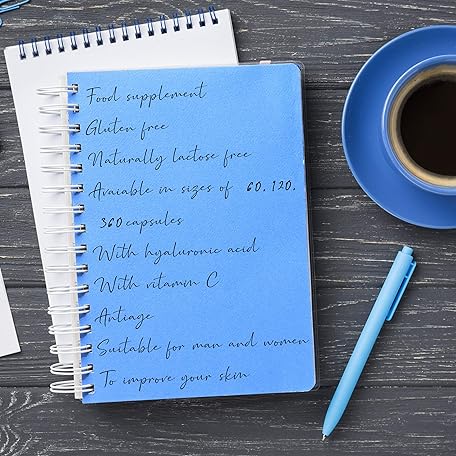 Food supplement
Gluten free
Naturally lactose free
Avaiable in sizes of 60, 120,
360 capsules
With hyaluronic acid
With vitamin C
Antiage
Suitable for man and women
To improve your skin